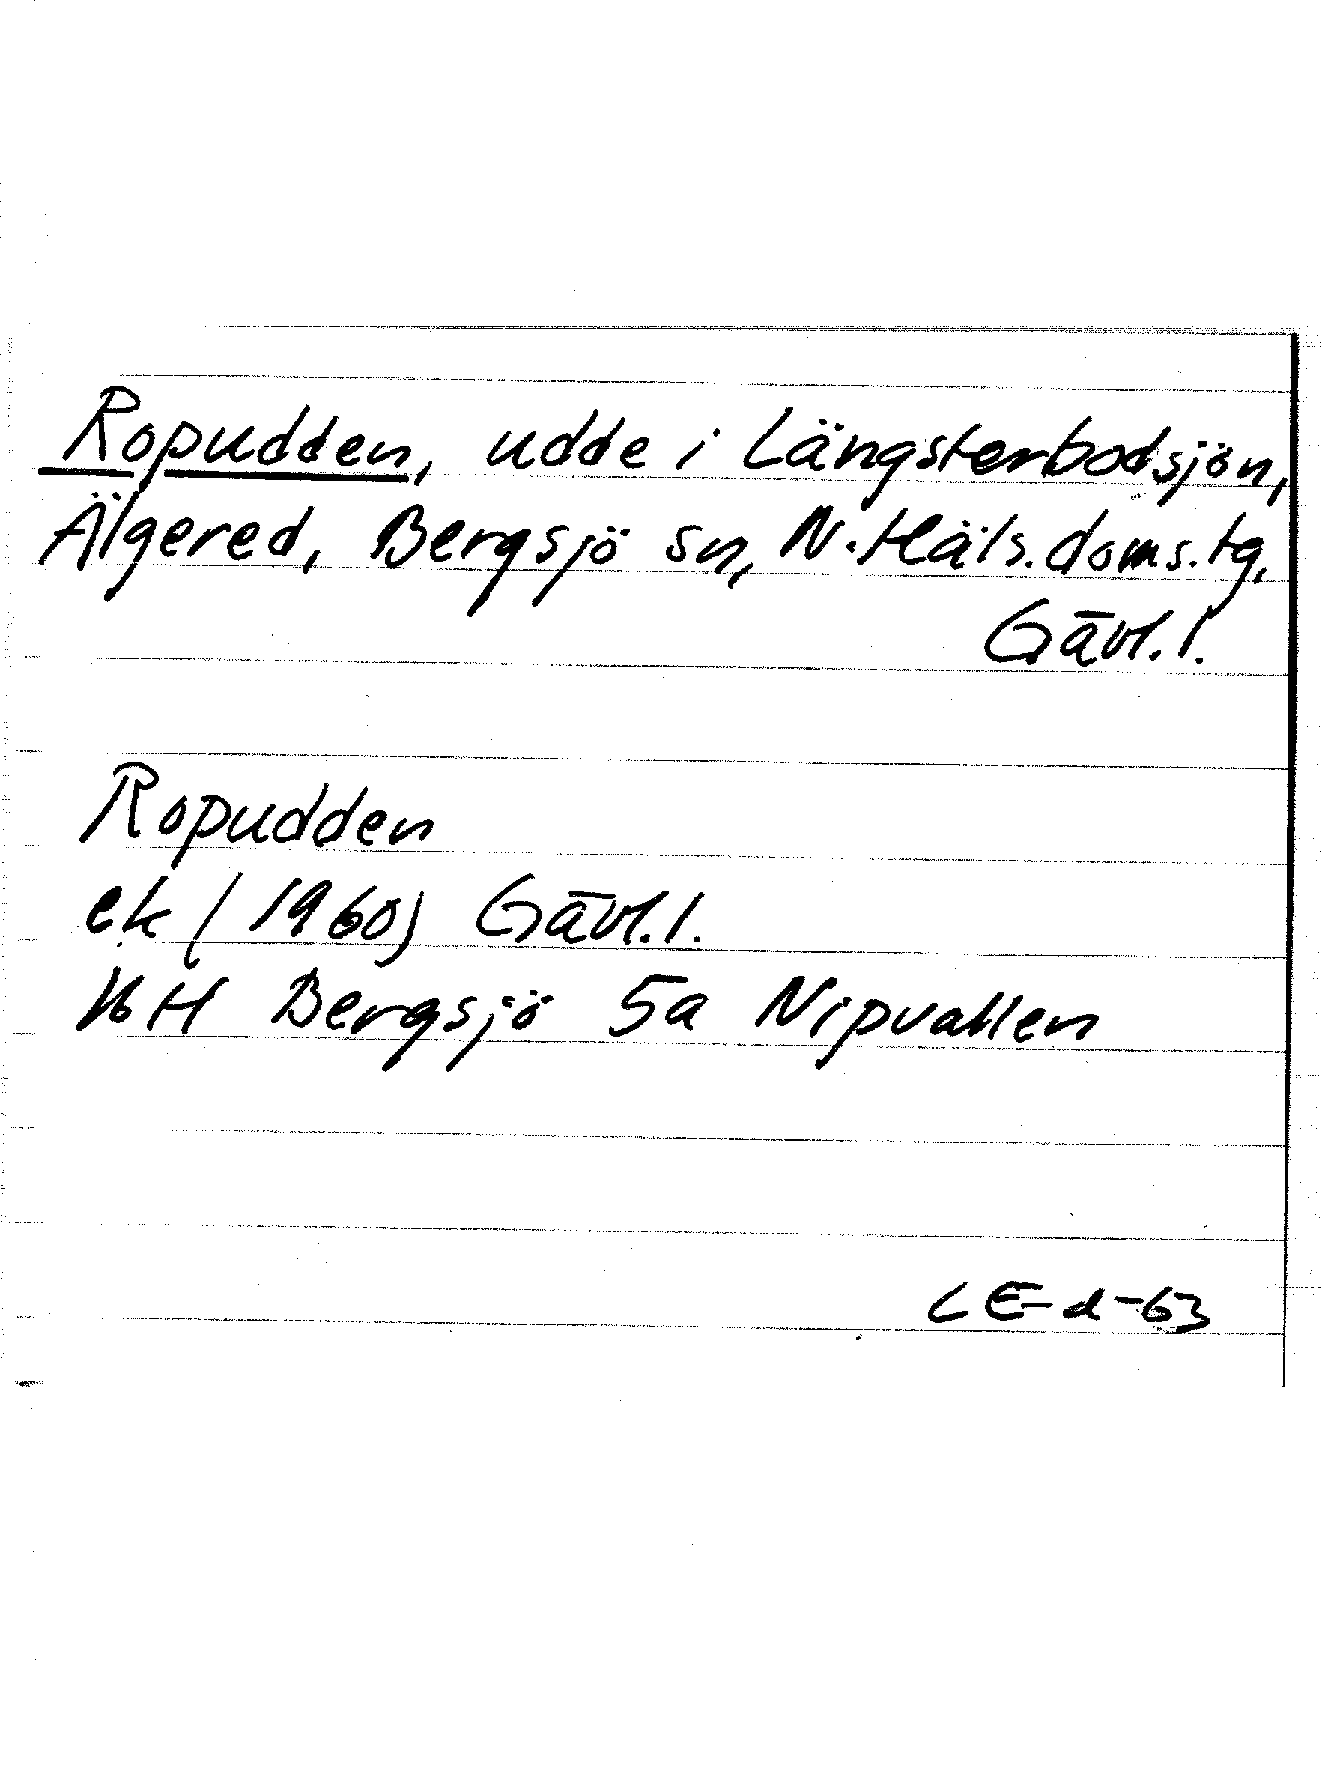 Ropudden, udde i Längsterbodsjön,
Älgered, Bergsjö sn, N. Häls. doms. tg,
Gävl. l.
Ropudden
ek (1960) Gävl. l.
16 H Bergsjö 5a Nipvallen
CE-d-63